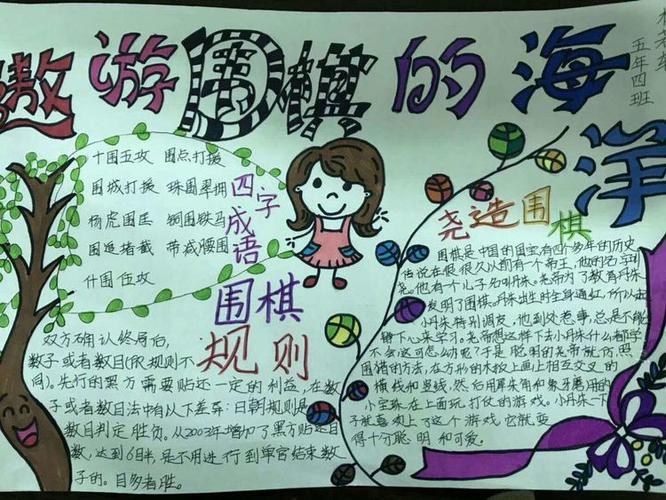 遨游围棋的海洋
五年四班
十围五攻 围点打援
围城打援 珠围翠拥
杨虎围匡 铜围铁马
围追堵截 带减腰围
什围伍攻
四字成语
围棋规则
双方确认终局后,
数子或者数目(你规则不
同)。先行的黑方需要贴还一定的利益,在数
子或者数目法中有以下差异:日朝规则是
数目判定胜负。从2003年增加了黑方贴还目
数,达到6目半,是不用进行到单官结束数
子的。目多者胜。
尧造围棋
围棋是中国的国宝,有四个多年的历史
传说在很很久以前有一个帝王,他的名字叫
尧。他有一个儿子名叫丹朱。尧帝为了教育丹朱
发明了围棋。丹朱出生时全身通红,所以起
小丹朱特别调皮,他到处惹事,总是不能
静下心来学习。尧帝想这样下去小丹朱什么都学
不会这可怎么办呢?于是聪明的尧帝就仿照
围猎的方法,在方形的木板上画上相互交叉的
横线和竖线,然后用犀朱角和象牙磨用的
小宝珠在上面玩打仗的游戏。小丹朱一下
子就喜欢上了这个游戏,它就变
得十分聪明和可爱。